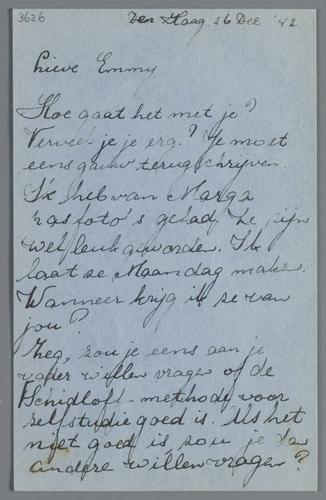 3626
Den Haag, 26 Dec '42
Lieve Emmy
Hoe gaat het met je?
Verveel je je erg? Je moet
eens gauw terugschrijven.
Ik heb van Marga
pasfoto's gehad. Ze zijn
wel leuk geworden. Ik
laat ze Maandag maken.
Wanneer krijg ik ze van
jou?
Zeg, zou je eens aan je
vader willen vragen of de
Schidloff-methode voor
zelfstudie goed is. Als het
niet goed is zou je dan
andere willen vragen?